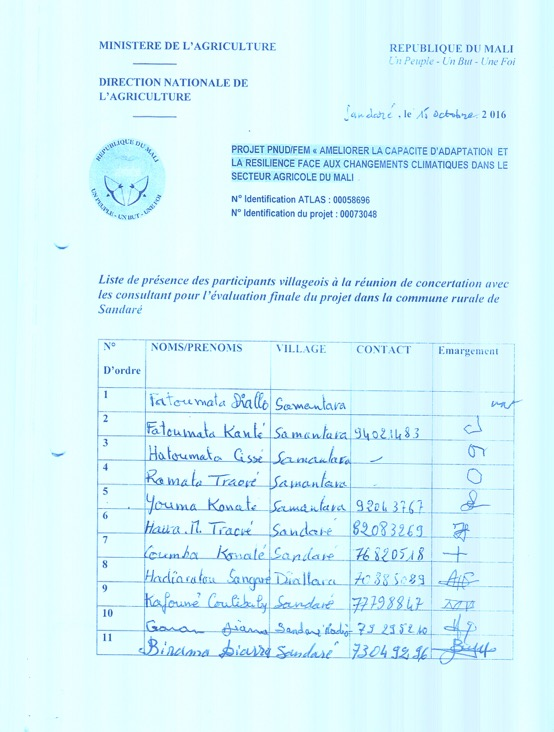 MINISTERE DE L'AGRICULTURE
REPUBLIQUE DU MALI
Un Peuple - Un But - Une Foi
DIRECTION NATIONALE DE
L'AGRICULTURE
Sandaré, le 15 octobre 2016
REPUBLIQUE DU MALI
UN PEUPLE - UN BUT - UNE FOI
PROJET PNUD/FEM « AMELIORER LA CAPACITE D'ADAPTATION ET
LA RESILIENCE FACE AUX CHANGEMENTS CLIMATIQUES DANS LE
SECTEUR AGRICOLE DU MALI
N° Identification ATLAS : 00058696
N° Identification du projet : 00073048
Liste de présence des participants villageois à la réunion de concertation avec
les consultant pour l'évaluation finale du projet dans la commune rurale de
Sandaré
N° D'ordre NOMS/PRENOMS VILLAGE CONTACT Emargement
1 Fatoumata Diallo Samantara
2 Fatoumata Kanté Samantara 94021483
3 Hatoumata Cissé Samantara -
4 Romata Traoré Samantara
5 Youma Konate Samantara 92043767
6 Hawa.M. Traoré Sandaré 82083269
7 Coumba Konaté Sandaré 76820518
8 Hadiaratou Sangaré Diallara
9 Kafouné Coulibaly Sandaré 77798847
10 Sandaré
11 Birama Diarra Sandaré 73049296